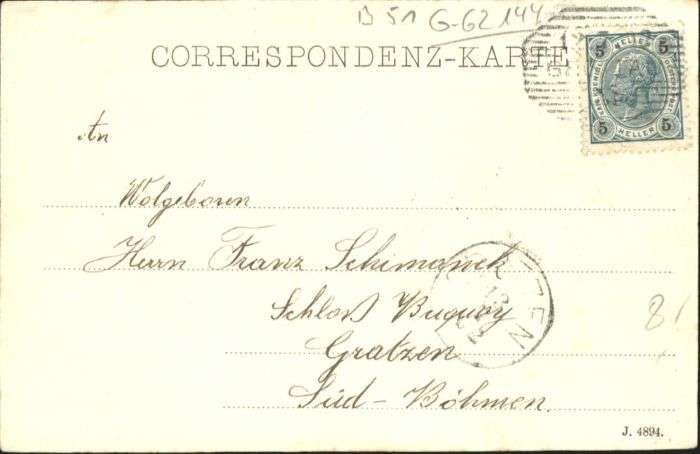 B 51 G-G2 144
CORRESPONDENZ-KARTE
5 HELLER 5
5 HELLER 5
An
Wolgeboren
Herrn Franz Schimanek
Schloß Buquoy
Gratzen
Süd-Böhmen.
J. 4894.